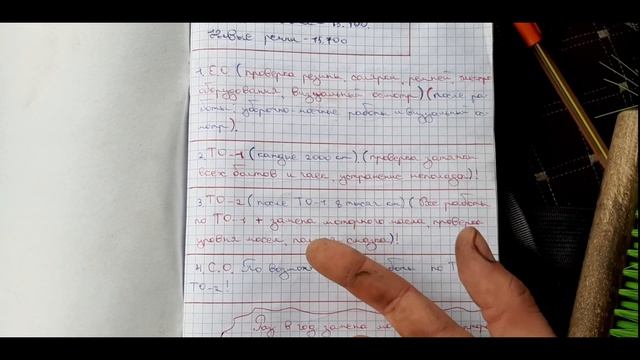 - 13.700.
Новые ремни - 13.700
1. Е.О. (проверка резины, солярки, ремней, электро
оборудования, визуальный осмотр) (после ра
боты: уборочно-моечные работы и визуальный ос
мотр).
2. ТО-1 (каждые 2000 км) (проверка затяжки
всех болтов и гаек, устранение неполадок)!
3. ТО-2 (после ТО-1 8 тысяч км) (Все работы
по ТО-1 + замена моторного масла, проверка
уровня масел, смазка)!
4. С.О. По по Т
ТО-2!
Раз в год замена